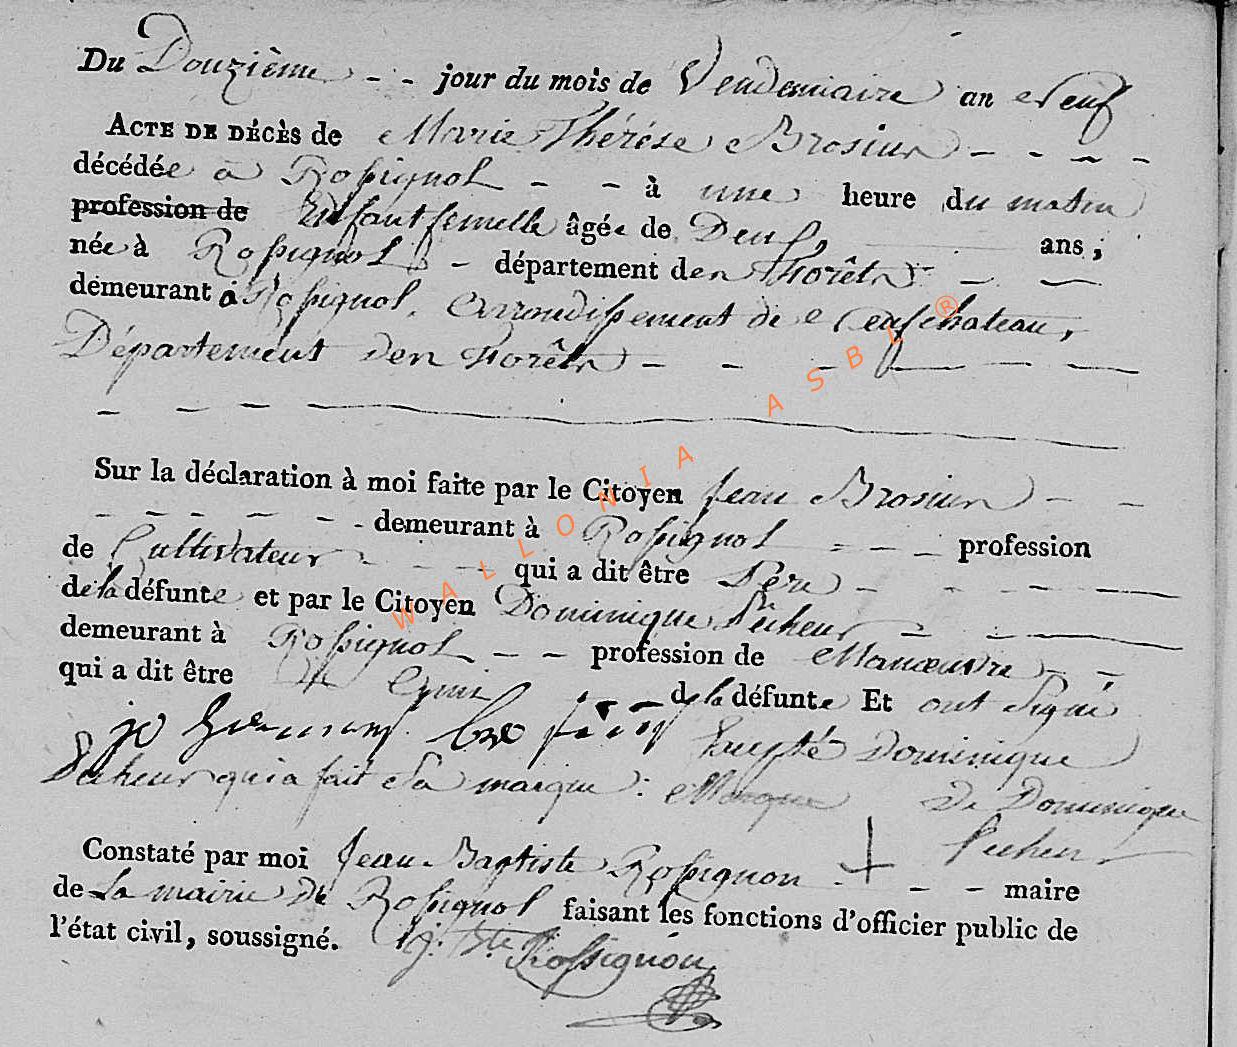 Du Douzième - - jour du mois de Vendemiaire an Neuf
ACTE DE DÉCÈS de Marie Thérése Brosius - - - -
décédée a Rossignol - - à une heure du matin
profession de Enfant femelle âgée de Deux ans ;
née à Rossignol - département des Forêts - -
demeurant à Rossignol, Arrondissement de Neufchateau,
Département des Forêts - - - - -
Sur la déclaration à moi faite par le Citoyen Jean Brosius - -
- - - - - - demeurant à Rossignol - - - profession
de Cultivateur - - - qui a dit être Père - - - -
de la défunte et par le Citoyen Dominique Pecheur - -
demeurant à Rossignol - - profession de Manœuvre - -
qui a dit être de la défunte Et ont Signé
Excepté Dominique
Pecheur qui a fait Sa marque : Marque De Dominique
Pecheur
Constaté par moi Jean Baptiste Rossignon - + - - maire
de La mairie De Rossignol faisant les fonctions d'officier public de
l'état civil, soussigné. J. Bte Rossignon
WALLONIA ASBL ®